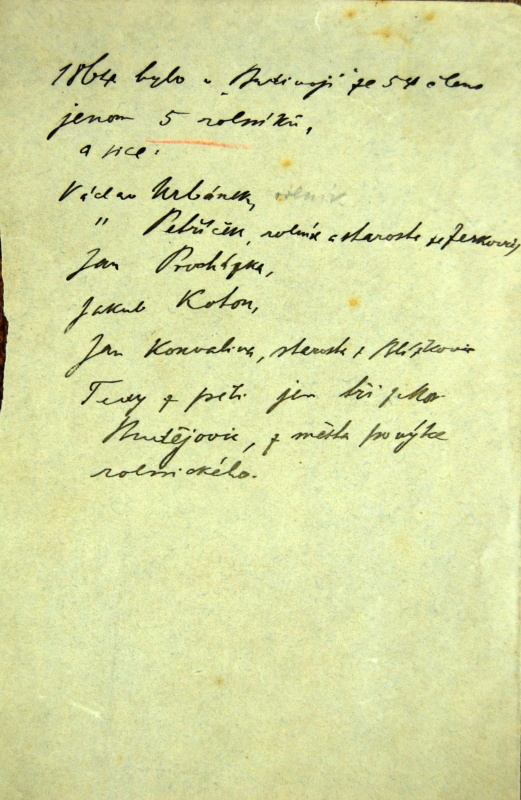 1864 bylo v "Budivoji" ze 54 členů
jenom 5 rolníků,
a sice:
Václav Urbánek, rolník
" Petříček, rolník a starosta ze Žerkovic
Jan Procházka,
Jakub Koton,
Jan Konvalina, starosta z
Tedy z pěti jen tři z Mor.
Budějovic, z města povýtce
rolnického.